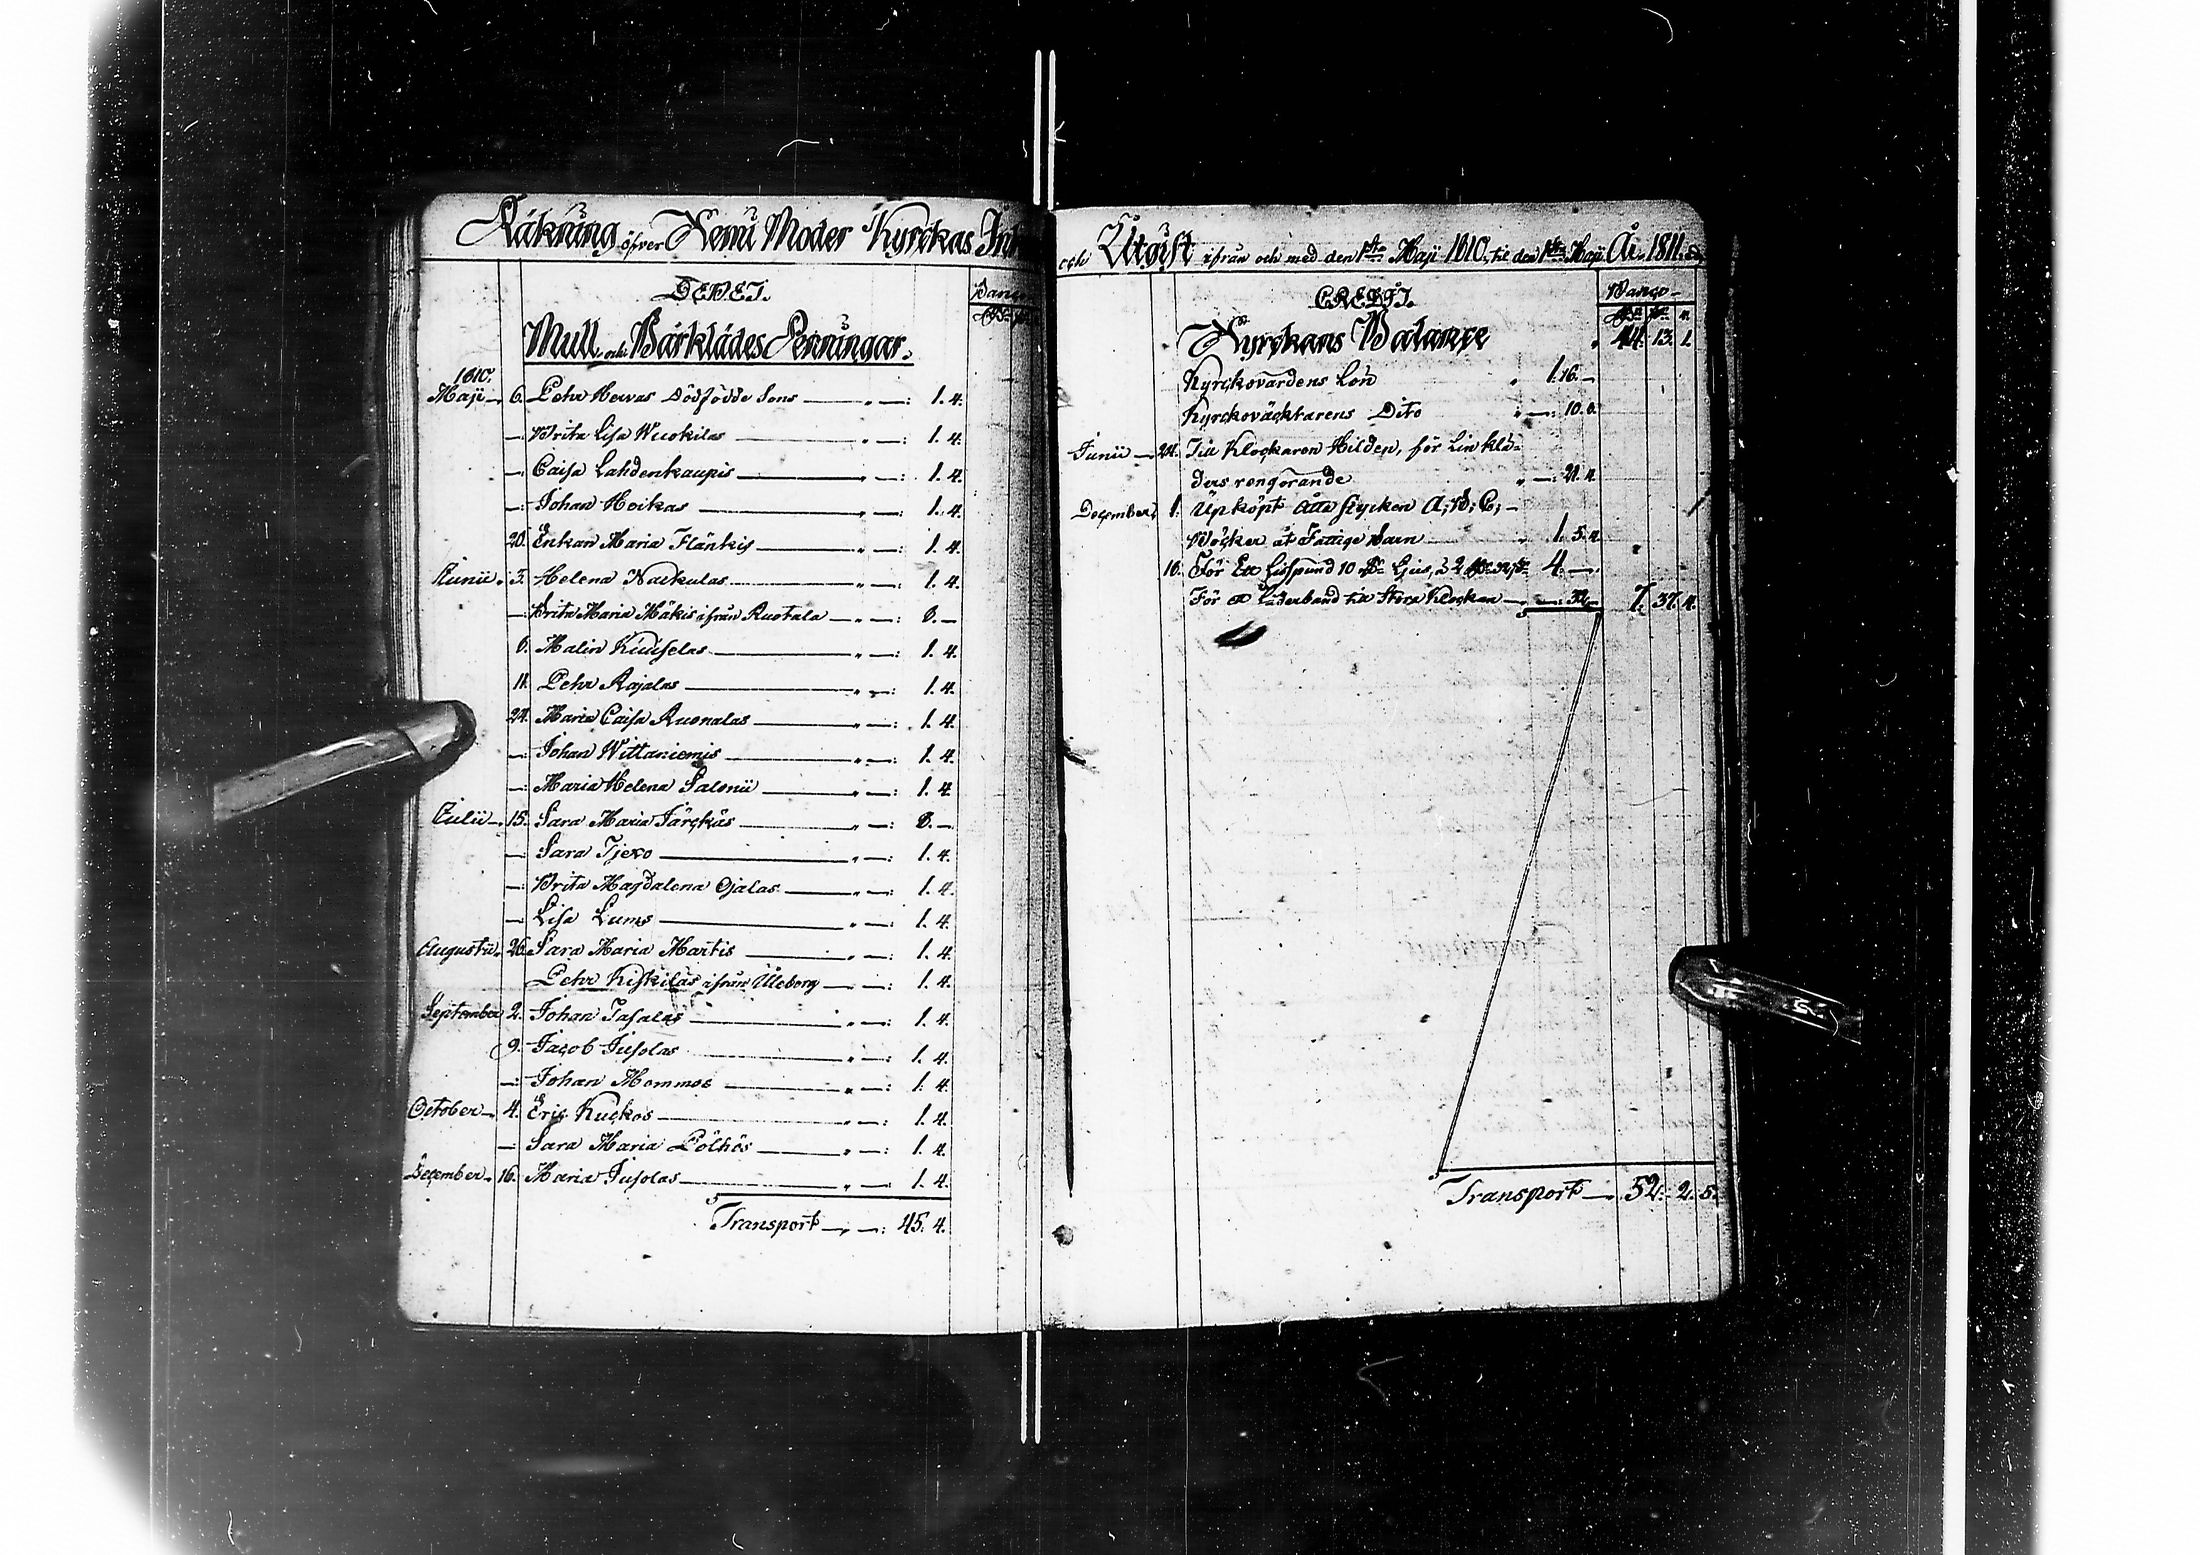 Räkning öfver Kemi Moder Kyrckas In
DEBET. Banco
Mull och Bårklädes Penningar.
1810.
Maji 6. Pehr Hervas Dödfödde Sons " —: 1. 4.
—: Brita Lisa Wuokilas " —: 1. 4.
—: Caisa Lahdenkaupis " —: 1. 4.
—: Johan Hoikas " —: 1. 4.
20. Enkan Maria Fläntis " —: 1. 4.
Junii 3. Helena Nackulas " —: 1. 4.
— Brita Maria Mäkis ifrån Ruotala " —: 8. —
6. Malin Kuuselas " —: 1. 4.
11. Pehr Rajalas " —: 1. 4.
24. Maria Caisa Ruonalas " —: 1. 4.
—: Johan Wittaniemis " —: 1. 4.
—: Maria Helena Salonii " —: 1. 4.
Julii 15. Sara Maria Järckäs " —: 8. —
—: Sara Tjexo " —: 1. 4.
—: Brita Magdalena Ojalas " —: 1. 4.
— Lisa Lums " —: 1. 4.
Augustii 26. Sara Maria Martis " —: 1. 4.
Pehr Kiskilas ifrån Uleborg —: 1. 4.
September 2. Johan Tasalas " —: 1. 4.
9. Jacob Jusolas " —: 1. 4.
—: Johan Mommos " —: 1. 4.
October 4. Eric Kuckos " —: 1. 4.
—: Sara Maria Pölhös " —: 1. 4.
December 16. Maria Jusolas " —: 1. 4.
Transport —: 45. 4.
och Utgift ifrån och med den 1sta Maji 1810, til den 1sta Maji År 1811.
CREDIT. Banco
Kyrckans Balance 44. 13. 1.
Kyrckovärdens Lön " 1. 16. —
Kyrckoväcktarens Dito " —: 10. 8.
Junii 24. Till Klockaren Hilden, för Linklä-
ders rengörande " —: 21. 4.
December 1. Upköpt Åtta stycken A; B; C; —
Böcker åt Fattige Barn " 1. 5. 4.
16. För Ett Lispund 10 Ljus, à 2 4. —
För et Läderband till Stora Klockan — 32. — 7. 37. 4.
Transport 52. 2. 5.